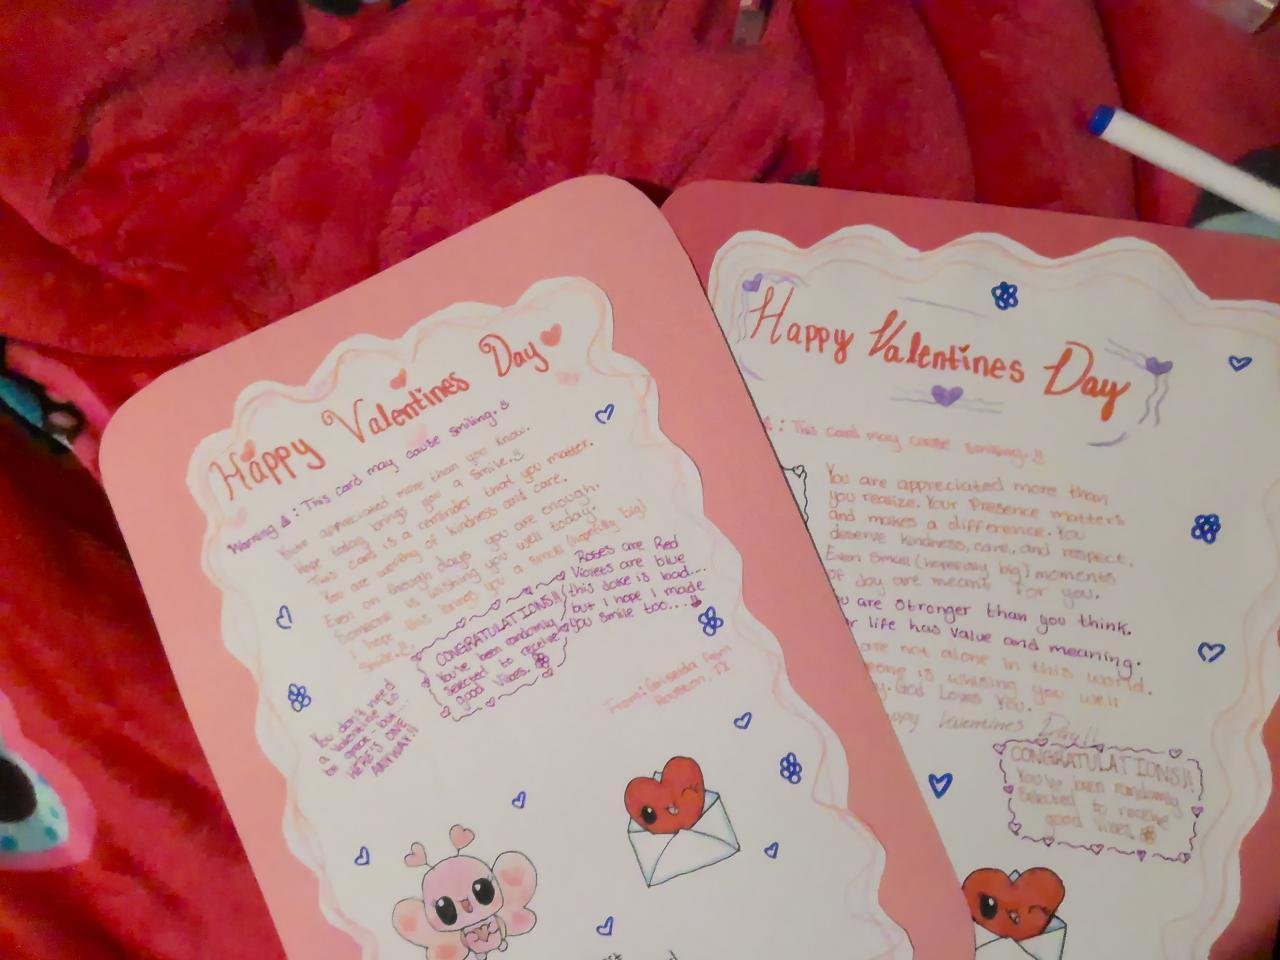 Happy Valentines Day
Warning : This card may cause smiling.
You're appreciated more than you know.
Hope today brings you a smile.
This card is a reminder that you matter.
You are worthy of kindness and care.
Even on tough days you are enough.
Someone is wishing you well today.
I hope this brings you a small (hopefully big)
smile.
Roses are Red
Violets are blue
this joke is bad....
but I hope I made
you smile too....
CONGRATULATIONS!!
You've been randomly
selected to receive
good vibes.
You don't need
a Valentine to
be great - but...
HERE'S ONE
ANYWAY!!
From: Griselda from
Houston, TX
Happy Valentines Day
: This card may cause smiling.
You are appreciated more than
you realize. Your Presence matters
and makes a difference. You
deserve kindness, care, and respect.
Even Small (hopefully big) moments
of day are meant for you.
are stronger than you think.
life has value and meaning.
are not alone in this world.
is whising you well
God Loves You.
Valentines Day!!
CONGRATULATIONS!!
You've been randomly
selected to receive
good vibes